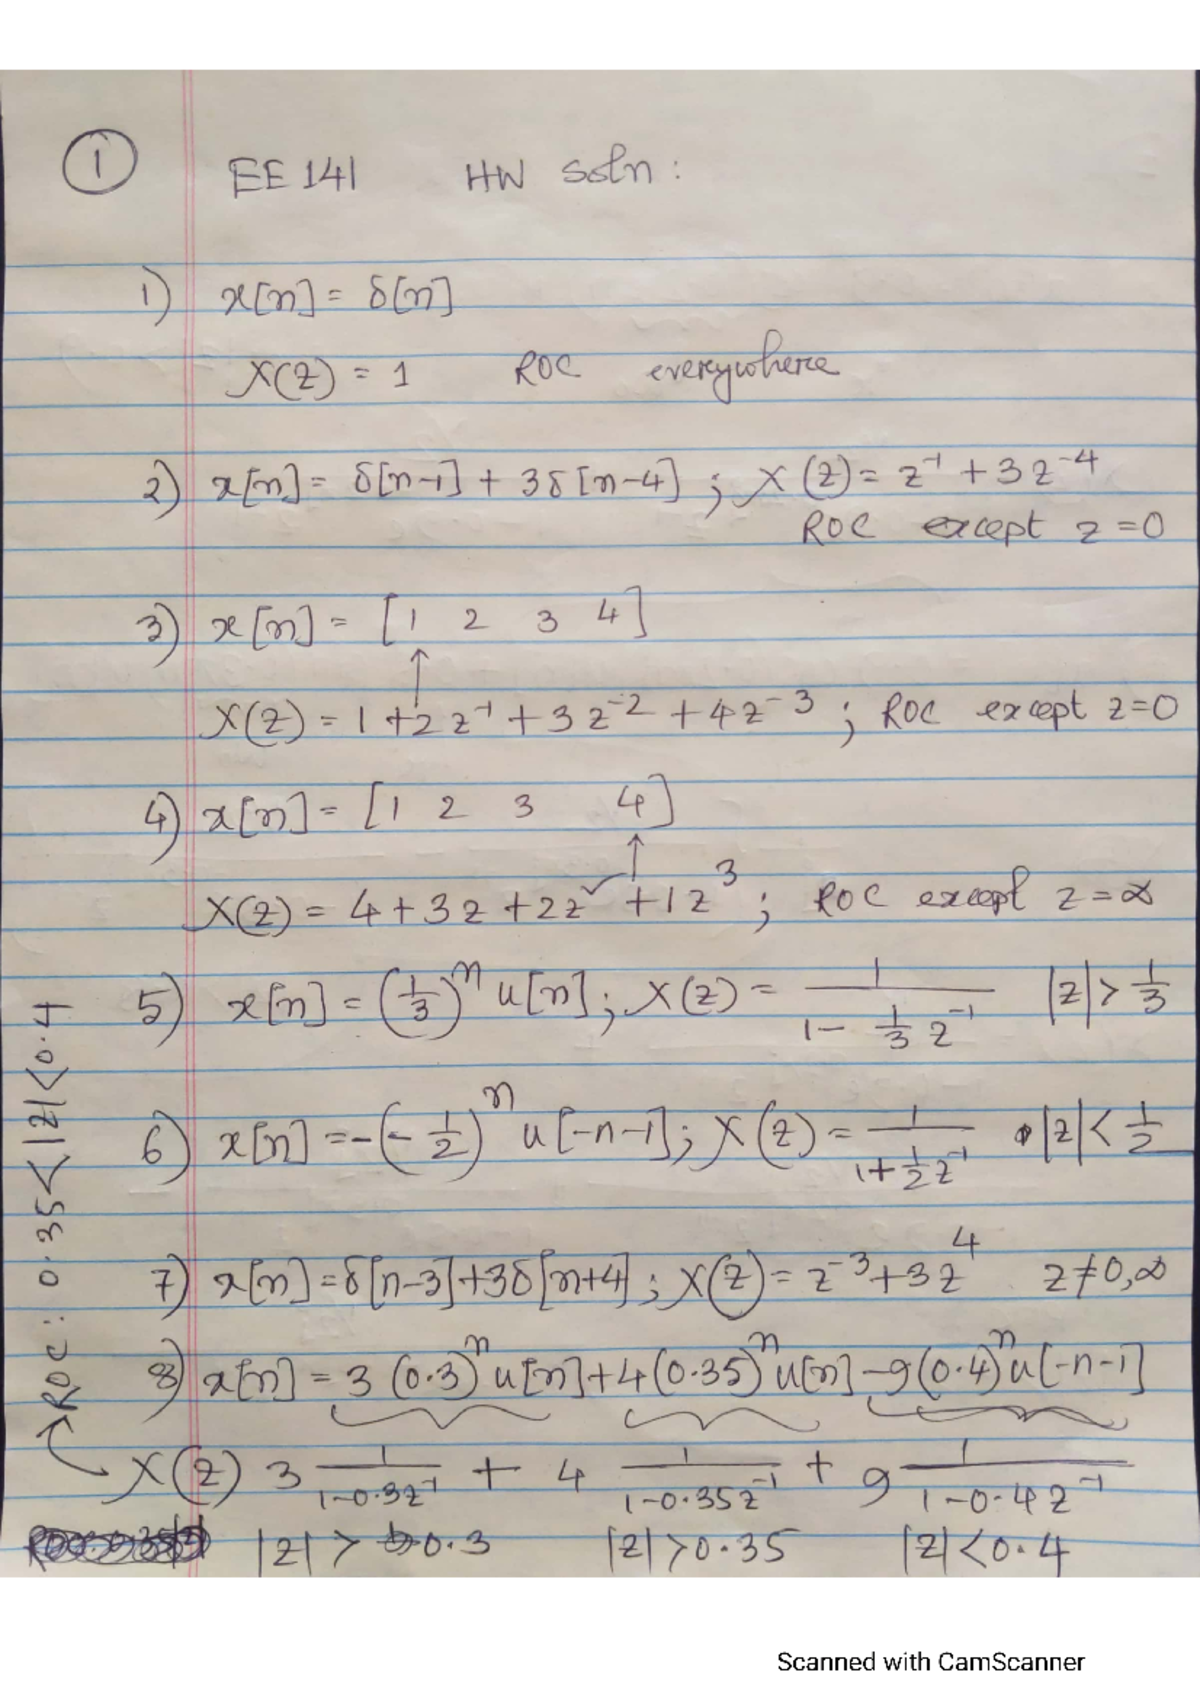 1
EE 141 HW Soln :
1) x[n] = δ[n]
X(z) = 1 ROC everywhere
2) x[n] = δ[n-1] + 3δ[n-4] ; X(z) = z⁻¹ + 3z⁻⁴
ROC except z = 0
3) x[n] = [1 2 3 4]
↑
X(z) = 1 + 2z⁻¹ + 3z⁻² + 4z⁻³ ; ROC except z=0
4) x[n] = [1 2 3 4]
↑
X(z) = 4 + 3z + 2z² + 1z³ ; ROC except z = ∞
5) x[n] = (1/3)ⁿ u[n] ; X(z) = 1/(1 - 1/3 z⁻¹) |z| > 1/3
6) x[n] = -(-1/2)ⁿ u[-n-1] ; X(z) = 1/(1 + 1/2 z⁻¹) |z| < 1/2
7) x[n] = δ[n-3] + 3δ[n+4] ; X(z) = z⁻³ + 3z⁴ z ≠ 0, ∞
8) x[n] = 3(0.3)ⁿ u[n] + 4(0.35)ⁿ u[n] - 9(0.4)ⁿ u[-n-1]
X(z) 3 1/(1-0.3z⁻¹) + 4 1/(1-0.35z⁻¹) + 9 1/(1-0.4z⁻¹)
|z| > 0.3 |z| > 0.35 |z| < 0.4
ROC : 0.35 < |z| < 0.4
Scanned with CamScanner